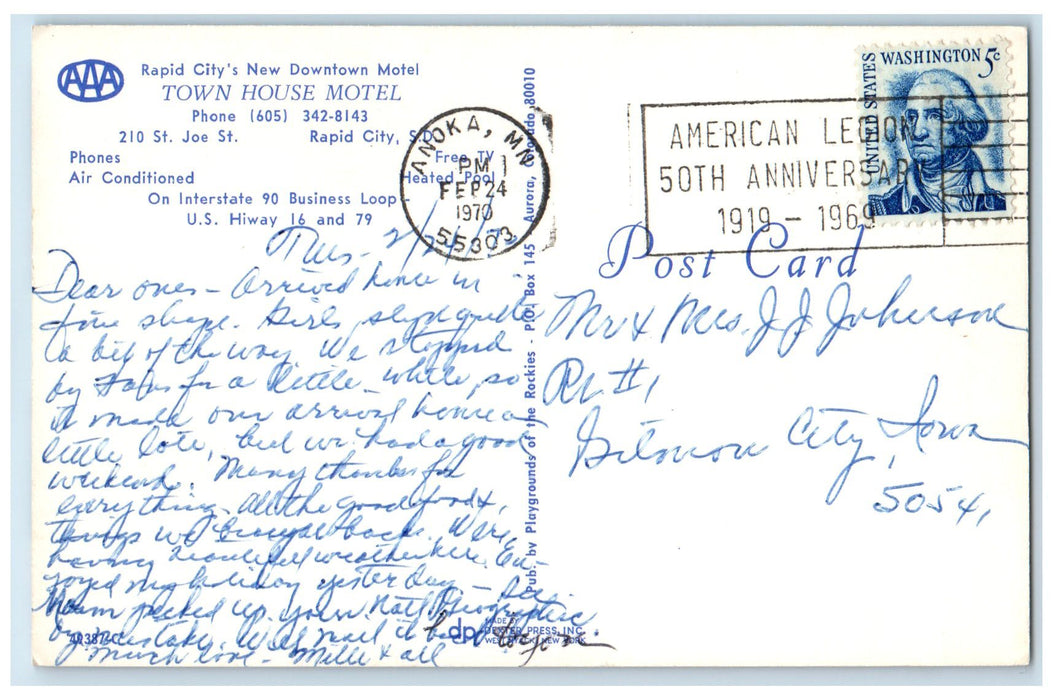 AAA
Rapid City's New Downtown Motel
TOWN HOUSE MOTEL
Phone (605) 342-8143
210 St. Joe St. Rapid City, S.D.
Phones Free TV
Air Conditioned Heated Pool
On Interstate 90 Business Loop
U.S. Hiway 16 and 79
ANOKA, MN
PM
FEB 24
1970
55303
AMERICAN LEGION
50TH ANNIVERSARY
1919 - 1969
UNITED STATES
WASHINGTON 5c
Post Card
Pub. by Playgrounds of the Rockies - P.O. Box 145 Aurora, Colorado 80010
Tues - 2/24/70
Dear ones - Arrived home in
fine shape. Girls slept quite
a bit of the way. We stopped
by for a little while, so
it made our arrival home a
little late, but we had a good
weekend. Many thanks for
everything. All the good food &
things we brought back. We're
having beautiful weather here. En-
joyed my holiday yesterday -
Mom picked up your Nat'l Geographic
by mistake. Will mail it back to you.
Much love - Mille & all
Mr & Mrs. J J Johnson
Rt #1
Gilmore City, Iowa
50541
MADE BY
dp DEXTER PRESS, INC.
WEST NYACK, NEW YORK